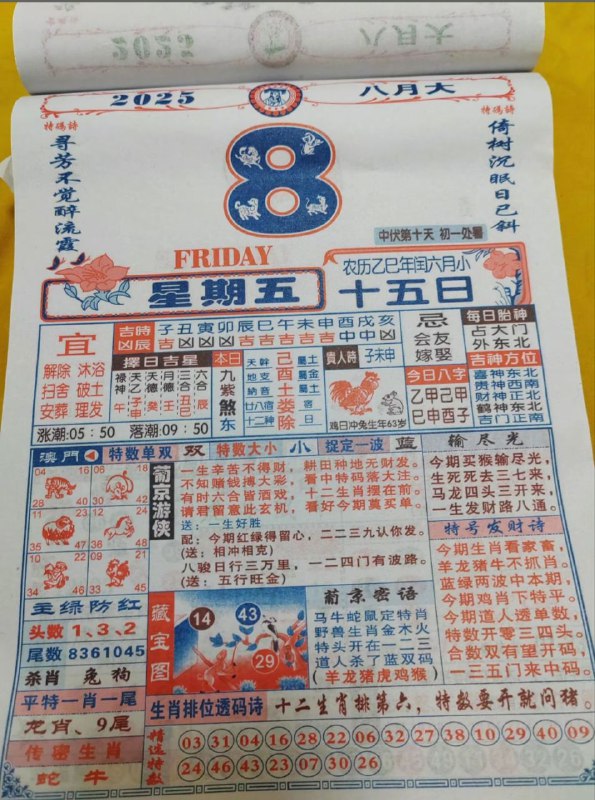 2025
八月大
特碼詩
特碼詩
寻芳不觉醉流霞
倚树沉眠日已斜
8
中伏第十天 初一处暑
FRIDAY
星期五
农历乙巳年闰六月小
十五日
宜
解除 沐浴
扫舍 破土
安葬 理发
吉時凶辰
子丑寅卯辰巳午未申酉戌亥
擇日吉星
本日
九紫煞东
己酉土娄除
貴人時
子未申
鸡日冲兔生年63岁
忌
会友
嫁娶
每日胎神
占大门
外东北
吉神方位
喜神东北
贵神西南
财神正北
鹤神东北
吉门正南
今日八字
乙甲己甲
巳申酉子
涨潮:05:50 落潮:09:50
澳門
特数单双 双
特数大小 小
捉定一波 蓝
输尽光
04 16 06 18
28 40 30 42
11 23 03 15
35 47
10 22
34 46 33 45
葡京游侠
一生辛苦不得财,耕田种地无财发。
不知赌钱搏大彩,看中特码落大注。
有时六合皆酒戏,十二生肖摆在前。
请君留意此玄机,看好今期莫买单。
送:一生好胜
配:今期红绿得留心,二二三九认你发。
(送:相冲相克)
八骏日行三万里,一二四门有波路。
(送:五行旺金)
今期买猴输尽光,
生死死去三七来,
马龙四头三开来,
一生发财路八通。
特号发财诗
今期生肖看家畜,
羊龙猪牛不抓肖。
蓝绿两波中本期,
今期鸡肖下特平。
今期道人透单数,
特数开零三四头。
合数双有望开码,
一三五门来中码。
主绿防红
头数 1、3、2
尾数 8361045
杀肖 兔 狗
平特一肖一尾
龙肖、9尾
传密生肖
蛇 牛
藏宝图
14
43
29
葡京密语
马牛蛇鼠定特肖
野兽生肖金木火
特头开在一二三
道人杀了蓝双码
(羊龙猪虎鸡猴)
生肖排位透码诗
十二生肖排第六,特数要开就问猪。
精选特数
03 31 04 16 28 22 06 32 27 38 10 29 40 09
24 46 43 23 07 30 26